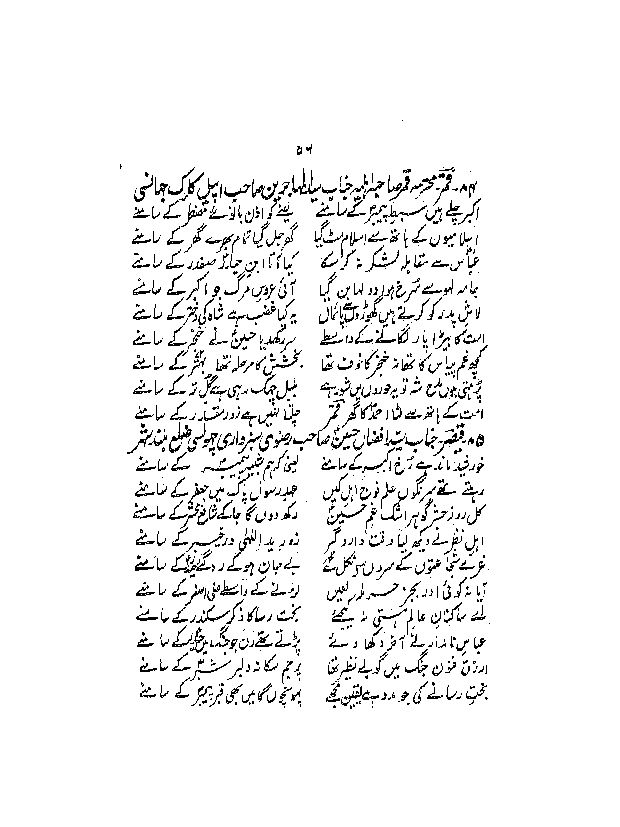 ۵۶
۸۴۔ قمر۔ محترمہ قمر صاحبہ اہلیہ جناب سید طاہرین صاحب اپیل کلرک جھانسی
اکبر چلے ہیں سبط پیمبر کے سامنے لینے کو اذن بانوئے مضطر کے سامنے
اسلامیوں کے ہاتھ سے اسلام مٹ گیا گھر جل گیا تمام بھرے گھر کے سامنے
عباس سے مقابلہ لشکر نہ کر سکے کیا آتا ابن حیدر صفدر کے سامنے
جامہ لہو سے سرخ ہوا دولہا بن گیا آئی عروس مرگ جو اکبر کے سامنے
لاش پدر کو کرتے ہیں گھوڑوں سے پائمال یہ کیا غضب ہے شاہ کی دختر کے سامنے
امت کا بیڑا پار لگانے کے واسطے سر رکھدیا حسین نے خنجر کے سامنے
کچھ غم پیاس کا تھا نہ خنجر کا خوف تھا بخشش کا مرحلہ تھا کے سامنے
پڑھتی ہوں مدح شہ تو یہ حوروں میں شور ہے بلبل چہک رہی ہے گل تر کے سامنے
امت کے ہاتھ سے لٹا احمد کا گھر قمر چلتا نہیں ہے زور مقدر کے سامنے
۸۵۔ قیصر۔ جناب سید افضال حسین صاحب رضوی سبزواری چولسی ضلع بلند شہر
خورشید ماند ہے رخ اکبر کے سامنے یعنی کہ ہم شبیہ پیمبر کے سامنے
رہتے تھے سرنگوں علم فوج اہل کیں حیدر رسول پاک میں جعفر کے سامنے
کل روز حشر گوہر اشک غم حسین رکھ دوں گا جا کے شافع محشر کے سامنے
اہل نظر نے دیکھ لیا وقت دار و گیر زور ید اللہی در خیبر کے سامنے
غرے شجاعتوں کے سروں سے نکل گئے بے جان ہو کے رہ گئے کے سامنے
آیا نہ کوئی اور بجز حرملہ لعیں لڑنے کے واسطے علی اصغر کے سامنے
اے ساکنان عالم ہستی نہ کیجئے بخت رسا کا ذکر سکندر کے سامنے
عباس نامدار نے آخر دکھا دئے پڑتے تھے رن جو جنگ میں کے سامنے
ارزق فنون جنگ میں گو بے نظیر تھا پر جم سکا نہ دلبر شبر کے سامنے
بخت رسا نے کی جو مدد ہے یقین مجھے پہونچوں گا میں بھی قبر پیمبر کے سامنے